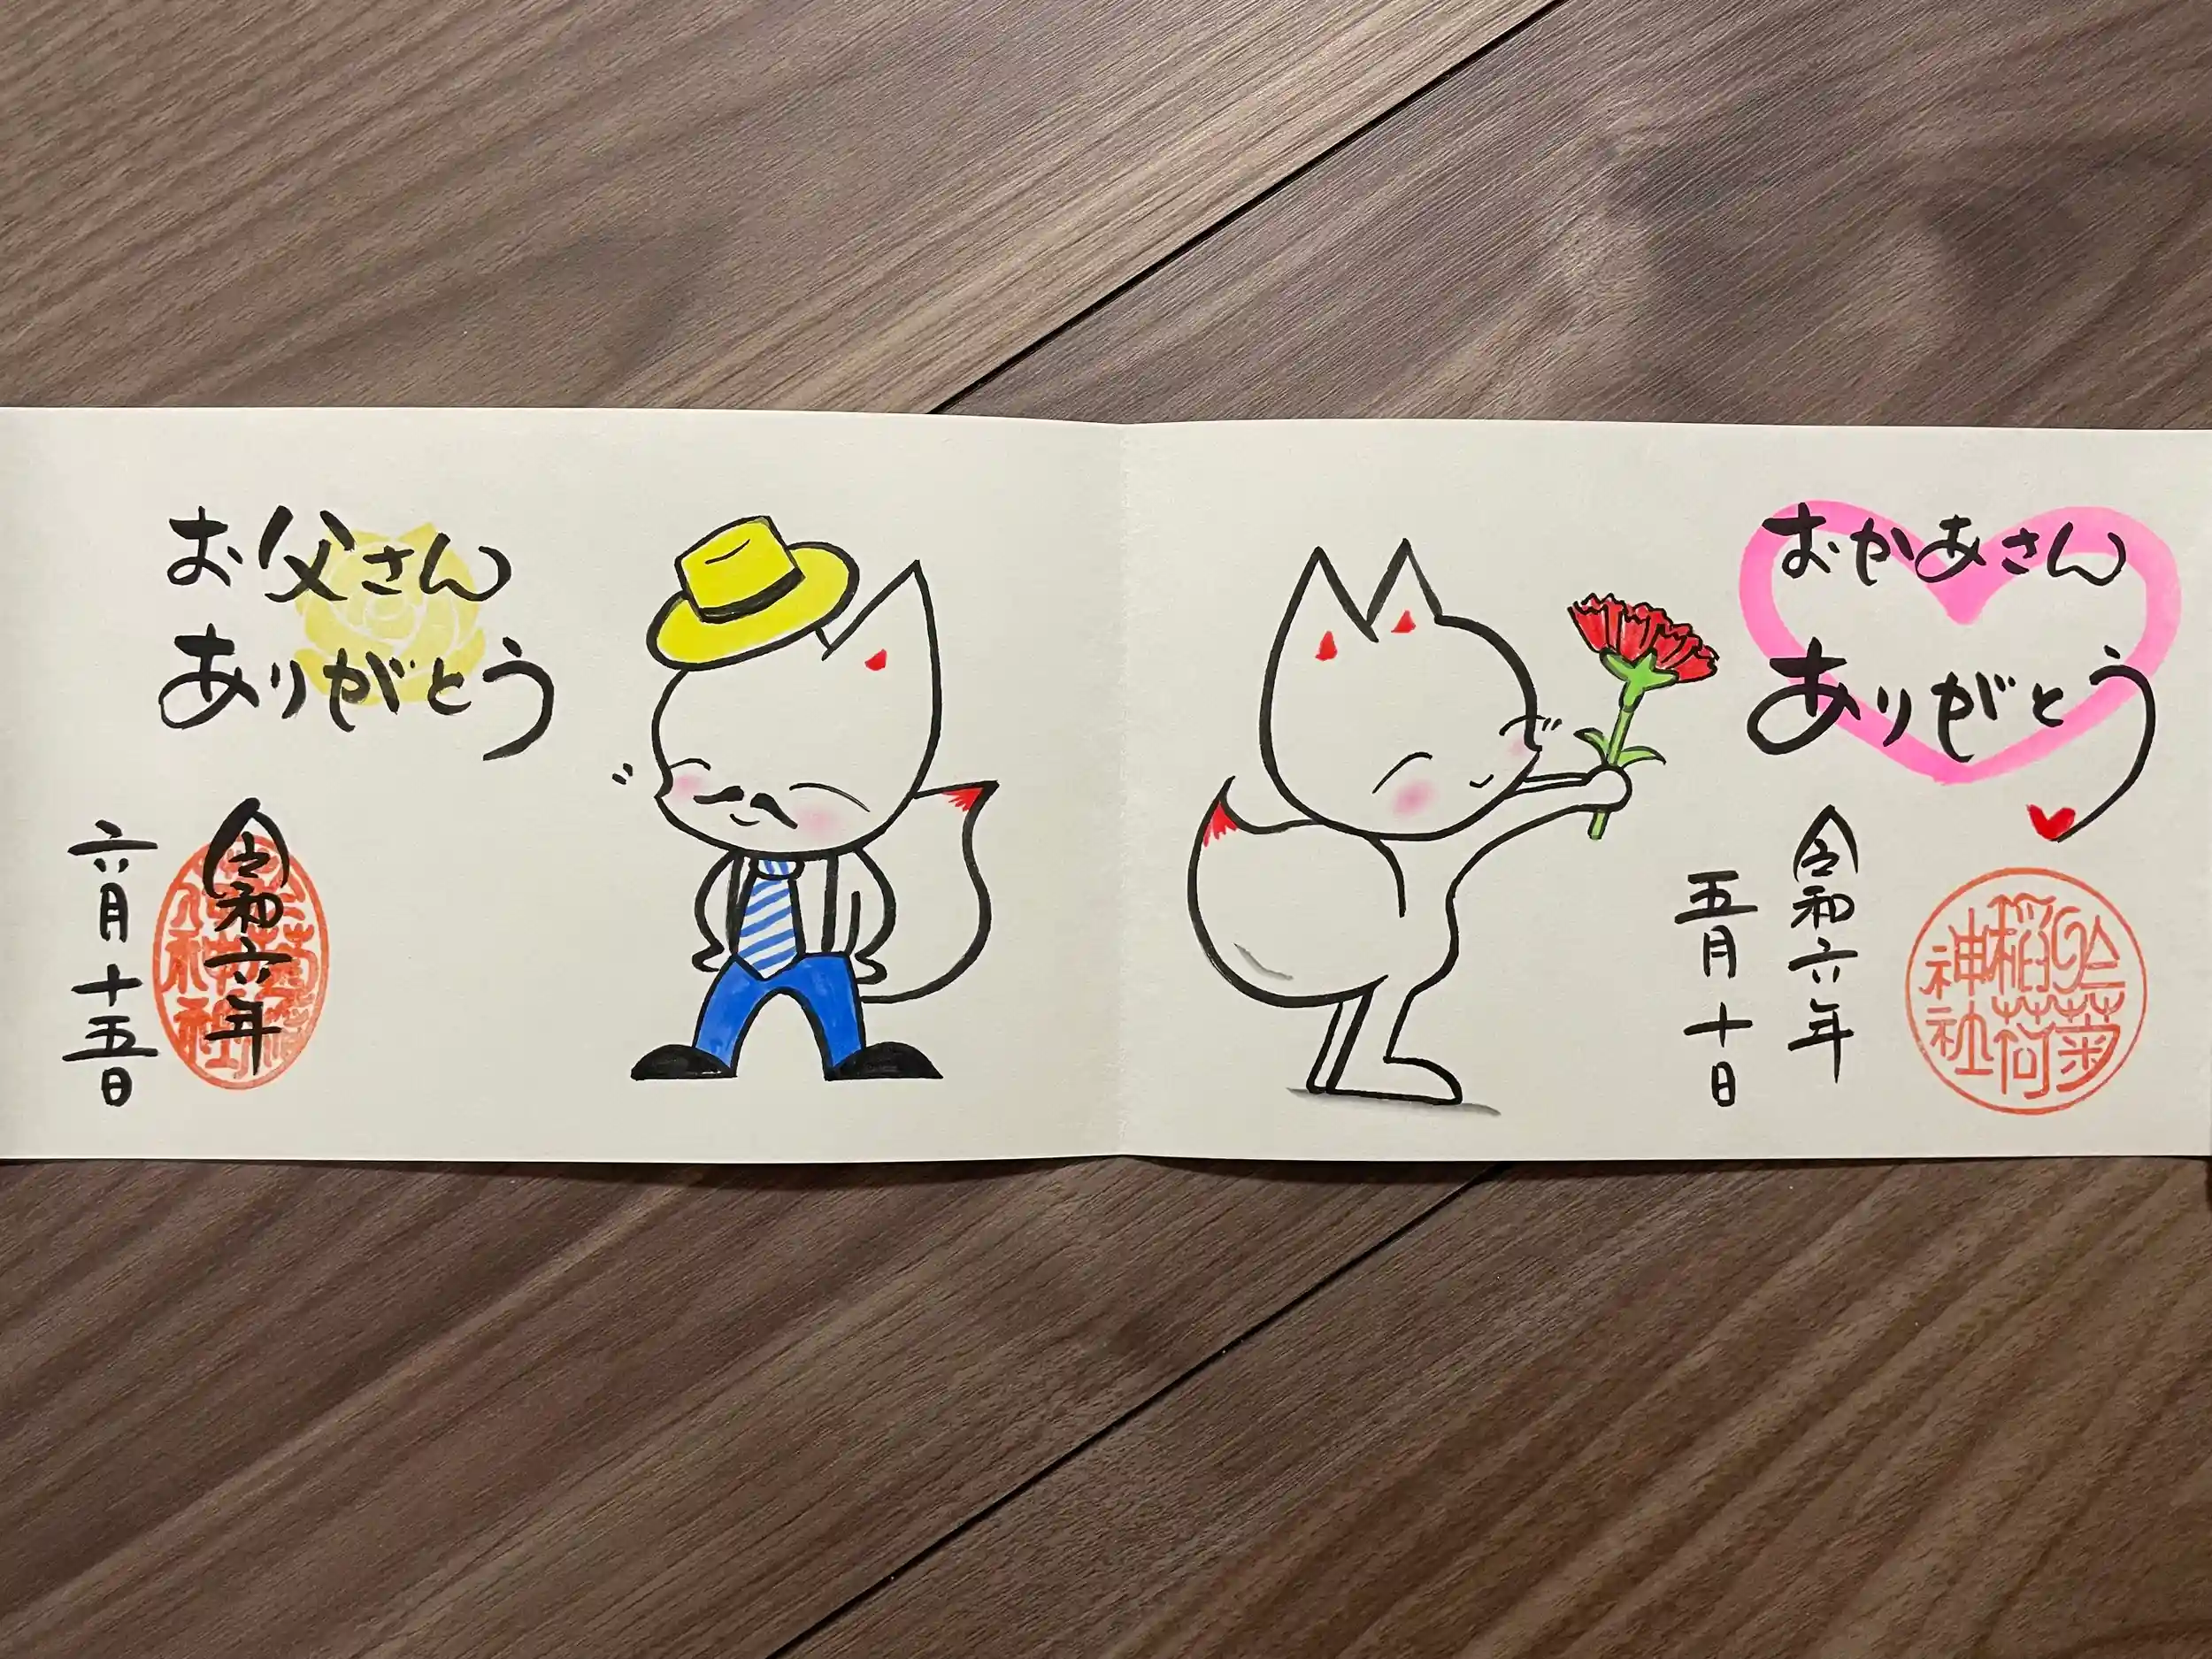 おかあさん
ありがとう
令和六年
五月十日
於菊
稲荷
神社
お父さん
ありがとう
令和六年
六月十五日